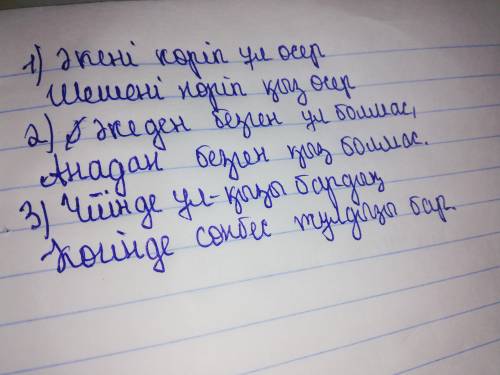 1) Әкені көріп ұл өсер
Шешені көріп қыз өсер
2) Әкеден безген ұл болмас,
Анадан безген қыз болмас.
3) Үйінде ұл-қызы бардың
Көгінде сөнбес жұлдызы бар.